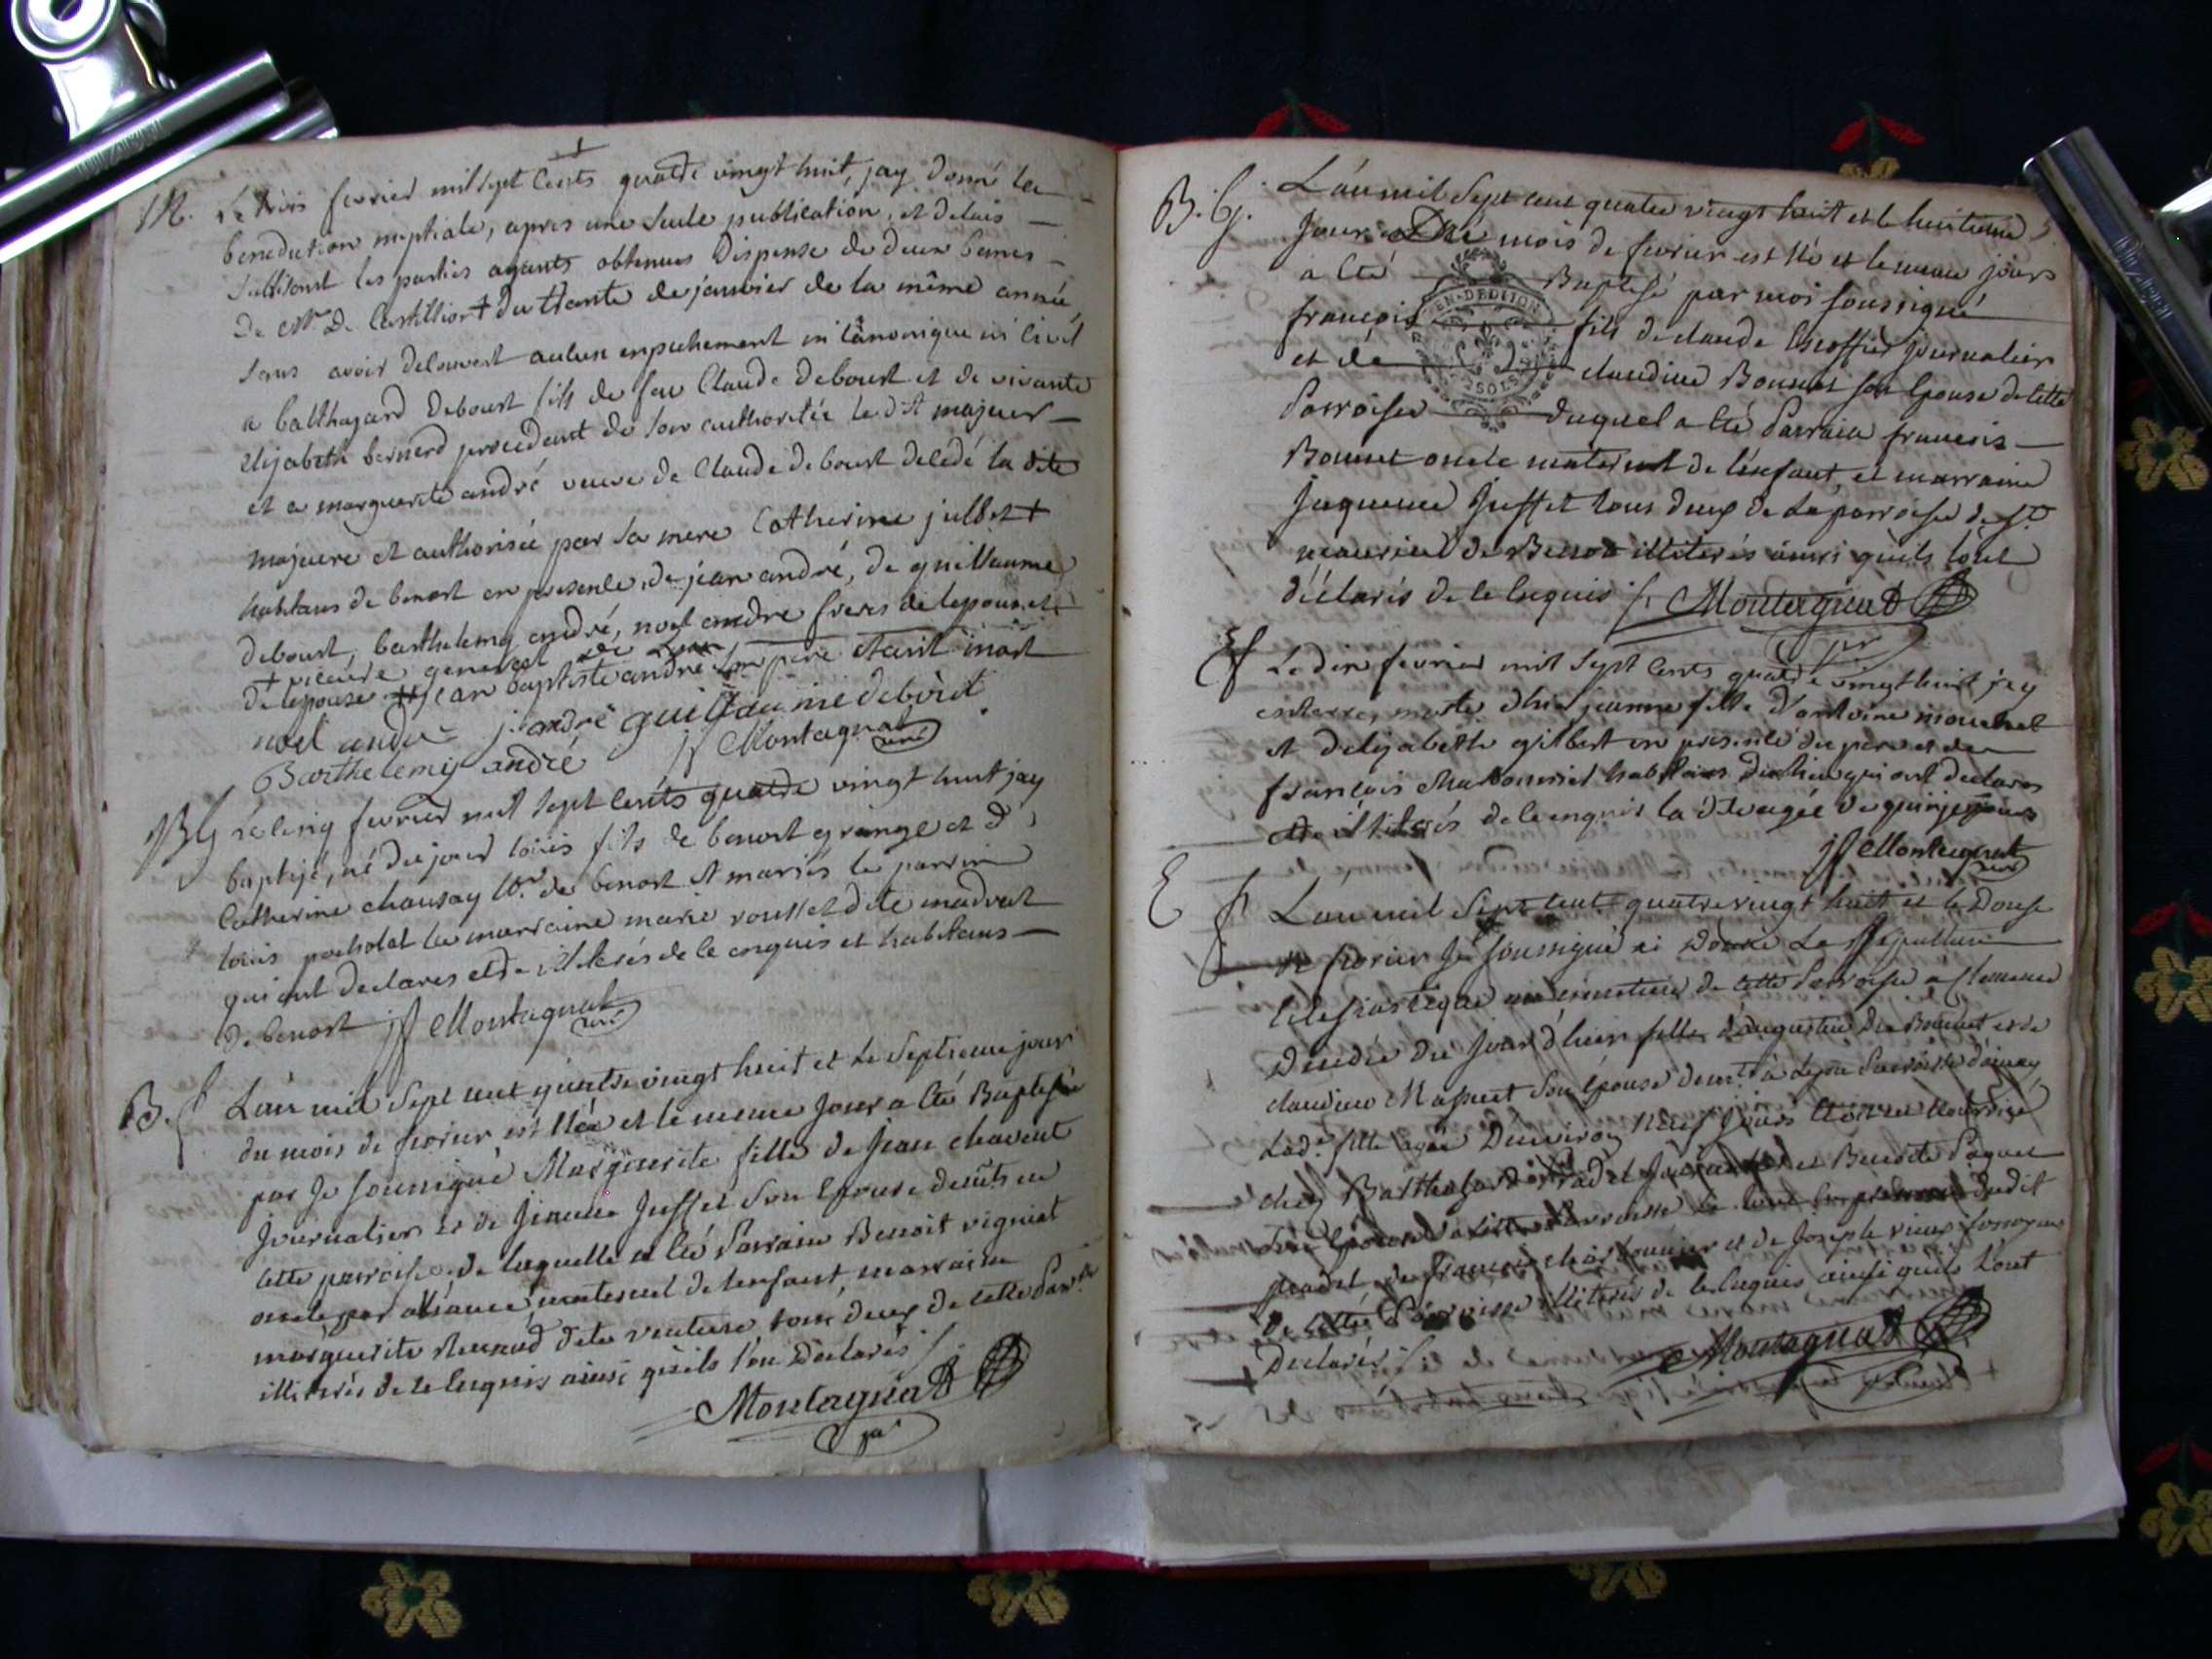 M. Le trois fevrier mil sept cents quatre vingt huit, jay donné la
benediction nuptiale, apres une seule publication, et delais
suffisant les parties ayants obtenues dispense de deux bannes
de Mr. de Castillion + du trante de janvier de la même année
sans avoir decouvert aucun enpechement ni canonique ni civil
a balthazard debourt fils de feu Claude debourt et de vivante
elizabeth bernard procedant de son authoritée le dit majeur
et a marguerite andré veuve de Claude debourt decedé la dite
majeure et authorisée par sa mere Catherine julbet +
habitans de benost en presence de jean andré, de guillaume
debourt, barthelemy andré, noel andre freres de lepouse
+ vicaire general de Lyon
de lepouse jean baptiste andré son pere étant mort
noel andré j. andré guillaume debourt
Barthelemy andré jf Montagnat curé
BG Le cinq fevrier mil sept cents quatre vingt huit jay
baptizé, né du jour louis fils de benost grange et d
Catherine chausay de benost et mariés le parrin
louis pocholat la marraine marie rousset dite madrat
qui ont declares etre illiterés de ce enquis et habitans
de benost jf Montagnat curé
B. f L'an mil sept cent quatre vingt huit et le septieme jour
du mois de fevrier est née et le meme jour a été Baptisée
par je soussigné Marguerite fille de Jean chavent
journalier et de jeanne juffet son Epouse demts en
cette parroisse de laquelle a été Parrain Benoit vigniat
oncle par alliance maternel de l'enfant, marraine
marguerite Renaud dite vouteuse tous deux de cette Parr.
illiterés de ce Enquis ainsi qu'ils l'on déclarés
Montagnat
B. G. L'an mil sept cent quatre vingt huit et le huitieme
jour Du mois de fevrier est né et le meme jours
a été Baptisé par moi soussigné
françois fils de claude Escoffier journalier
et de claudine Bonnet son Epouse de cette
Parroisse duquel a été Parrain françois
Bonnet oncle maternel de l'enfant, et marraine
jaqueme juffet tous deux de La parroisse de St.
maurice de Benost illiterés ainsi qu'ils l'out
déclarés de ce Enquis Montagnat
Ef Le dix fevrier mil sept cents quatre vingt huit jay
enterré, morte d'hier jeanne fille d'antoine mouchet
et d'elizabeth gilbert en presence du pere et de
françois charbonnier habitans du lieu qui ont declares
etre illiterés de ce enquis la dite agée de quinze jours
jf Montagnat curé
E f L'an mil sept cent quatre vingt huit et le Douse
de fevrier Je soussigné ai donné La sepulture
Eclesiastique au cimetiere de cette Parroisse a Clemence
Decedée du jour d'hier fille d'augustin Du Bouchet et de
claudine Massuet son épouse demt. à Lyon Paroisse d'ainay
Lad.e fille agée D'environ Neuf jours Etoit en Nourrice
chez Barthazard Pradel et Benoite Paquet
son Epouse de cette Parroisse Le tout En presence dudit
pradel de françois charbonnier et de Joseph
de cette Parroisse illiterés de ce Enquis ainsi quils l'ont
Declarés Montagnat